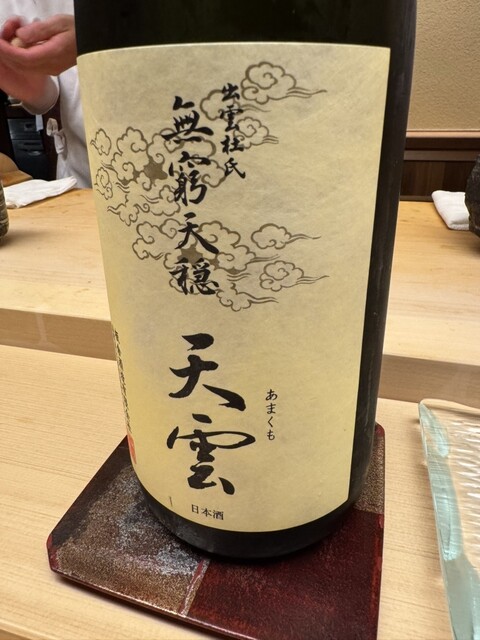 出雲杜氏
無窮天穏
天雲
あまくも
日本酒